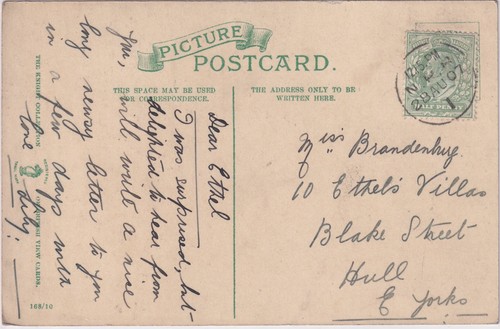 PICTURE
POSTCARD.
THIS SPACE MAY BE USED
FOR CORRESPONDENCE.
THE ADDRESS ONLY TO BE
WRITTEN HERE.
Dear Ethel
I was surprised, but
delighted to hear from
you, will write a nice
long newsy letter to you
in a few days
love
Miss Brandenburg.
10 Ethel's Villas
Blake Street
Hull
E Yorks
THE KNIGHT COLLECTION
VIEW CARDS.
168/10
HALF PENNY